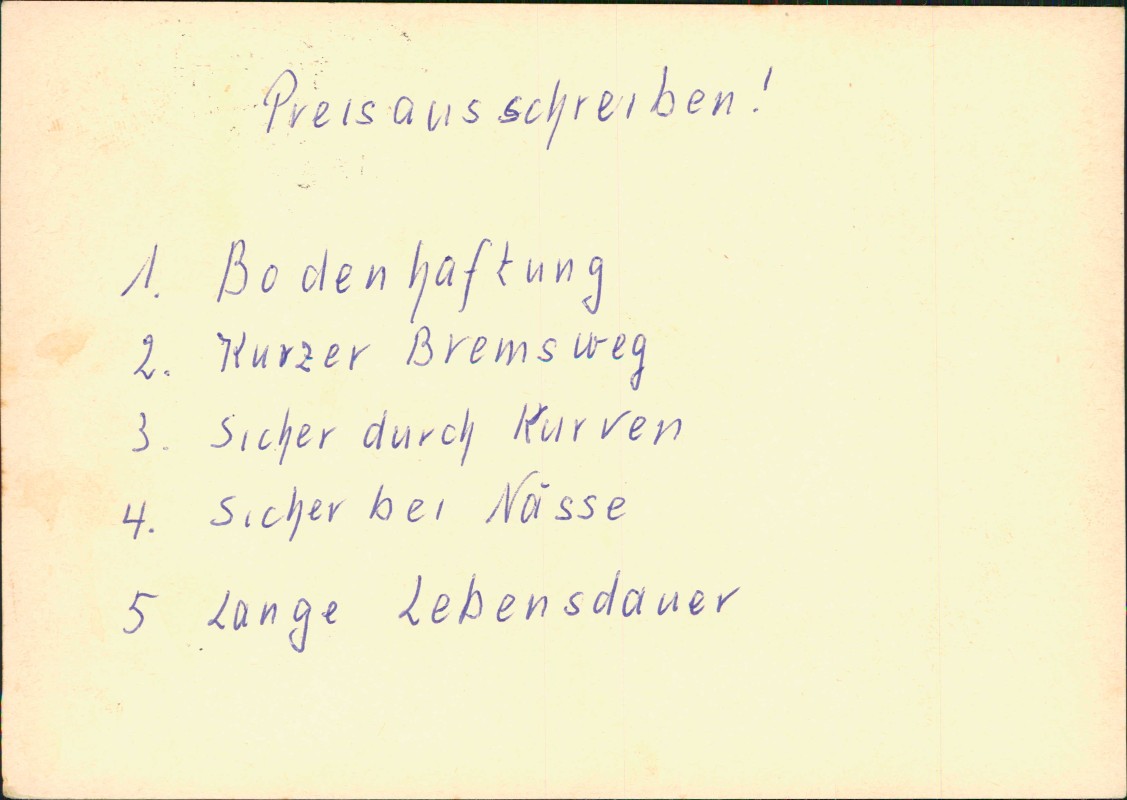 Preisausschreiben!
1. Bodenhaftung
2. Kurzer Bremsweg
3. Sicher durch Kurven
4. Sicher bei Nässe
5 Lange Lebensdauer